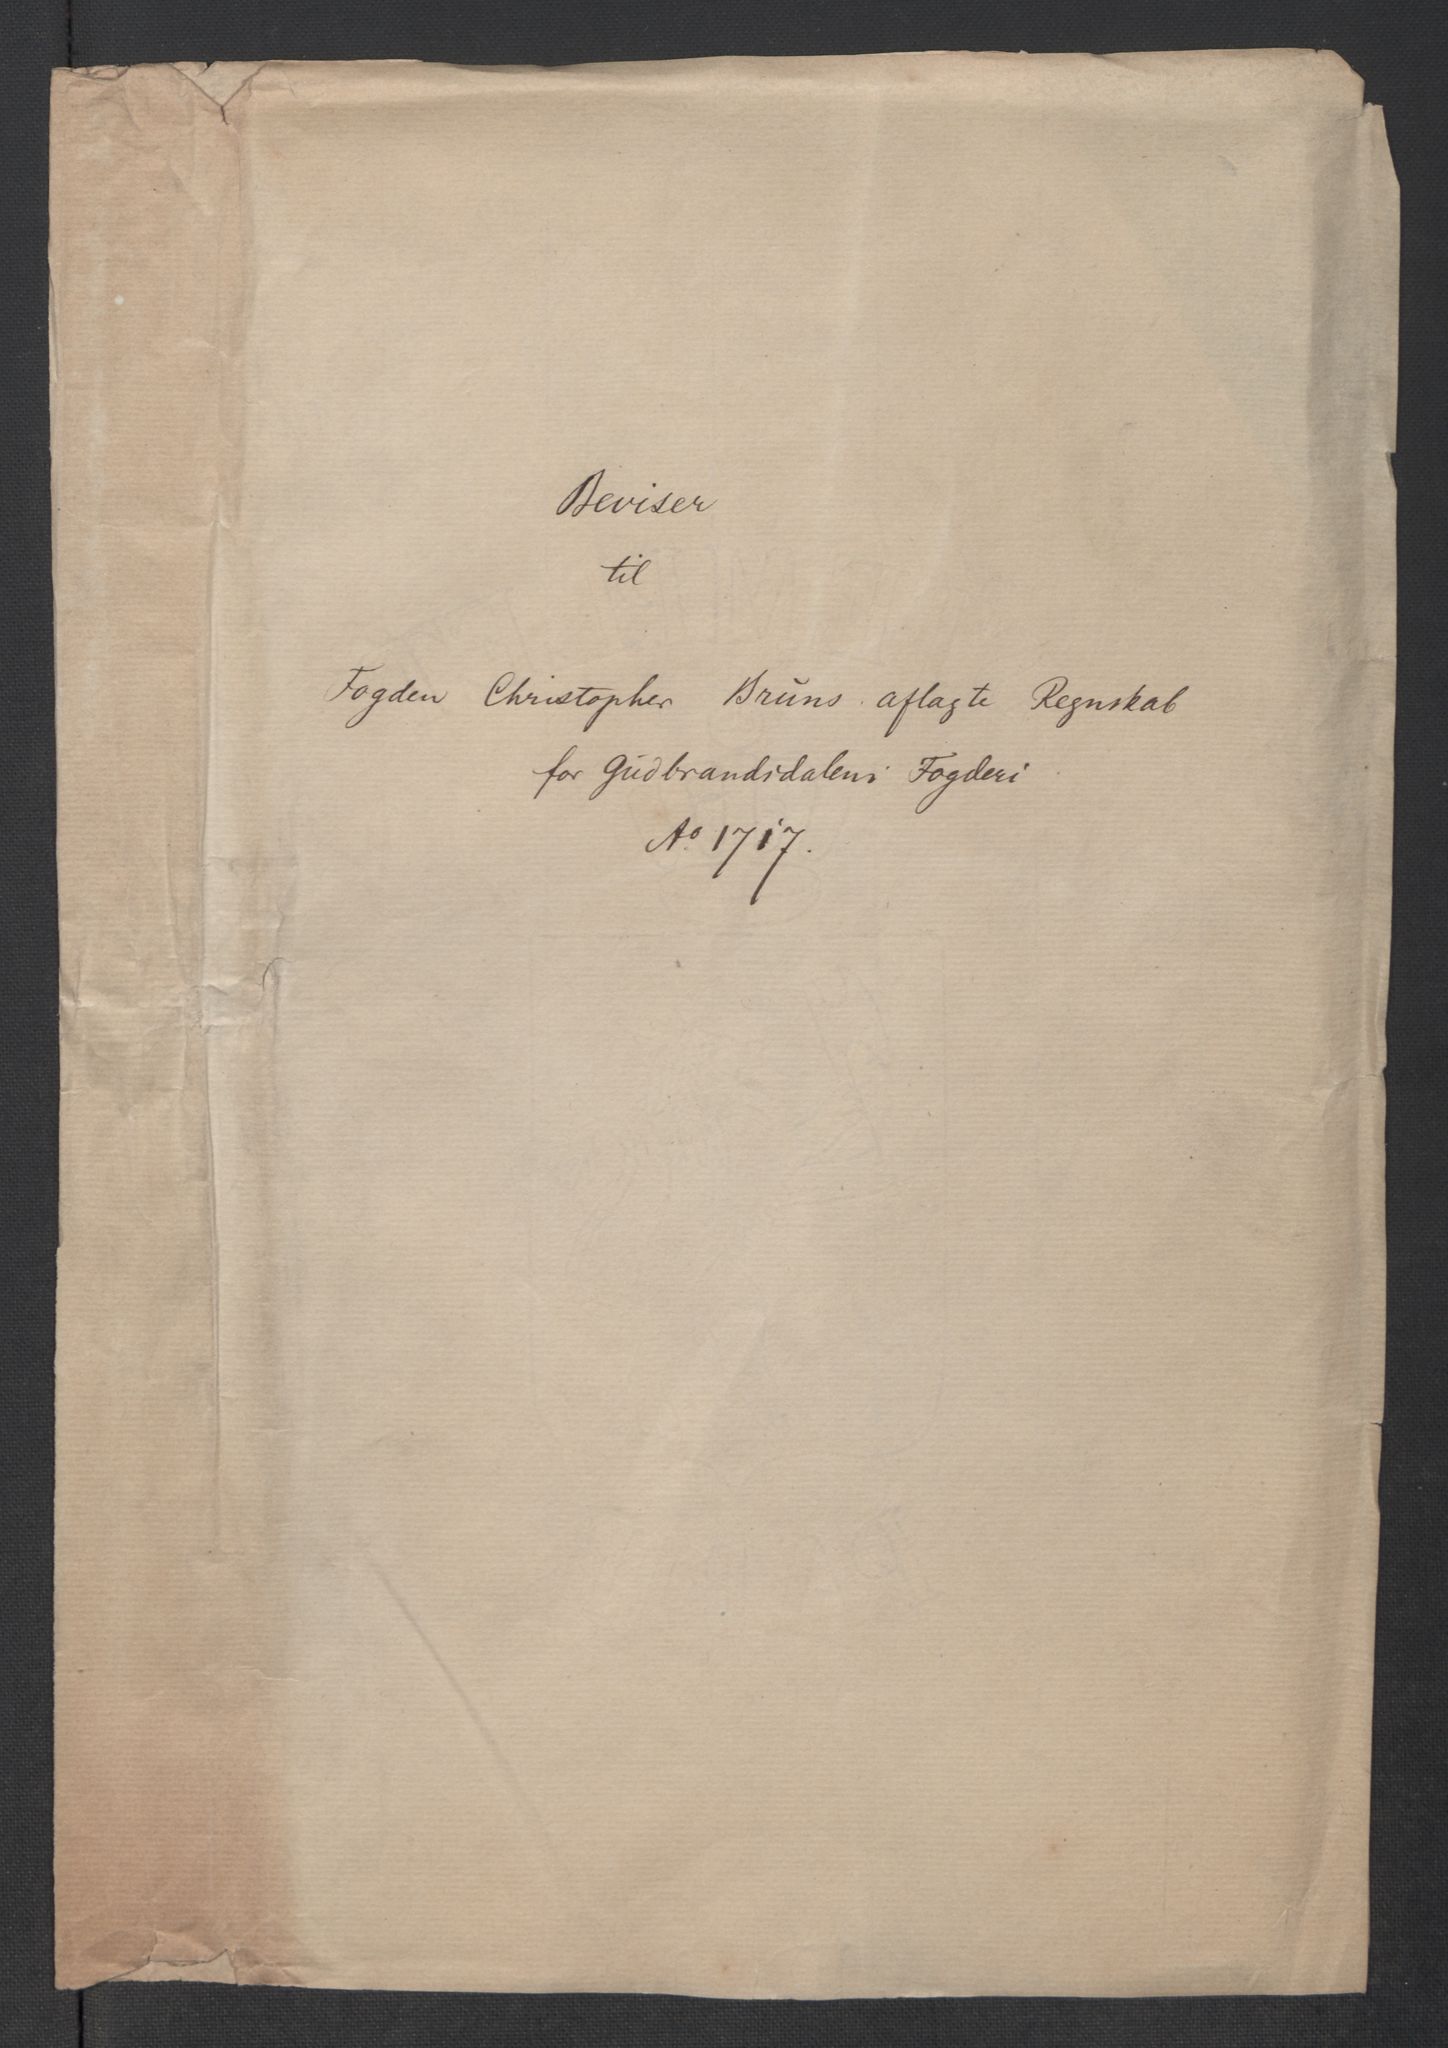 Beviser
til
Fogden Christopher Bruns aflagte Regnskab
for Gudbrandsdalens Fogderi
Aº 1717.